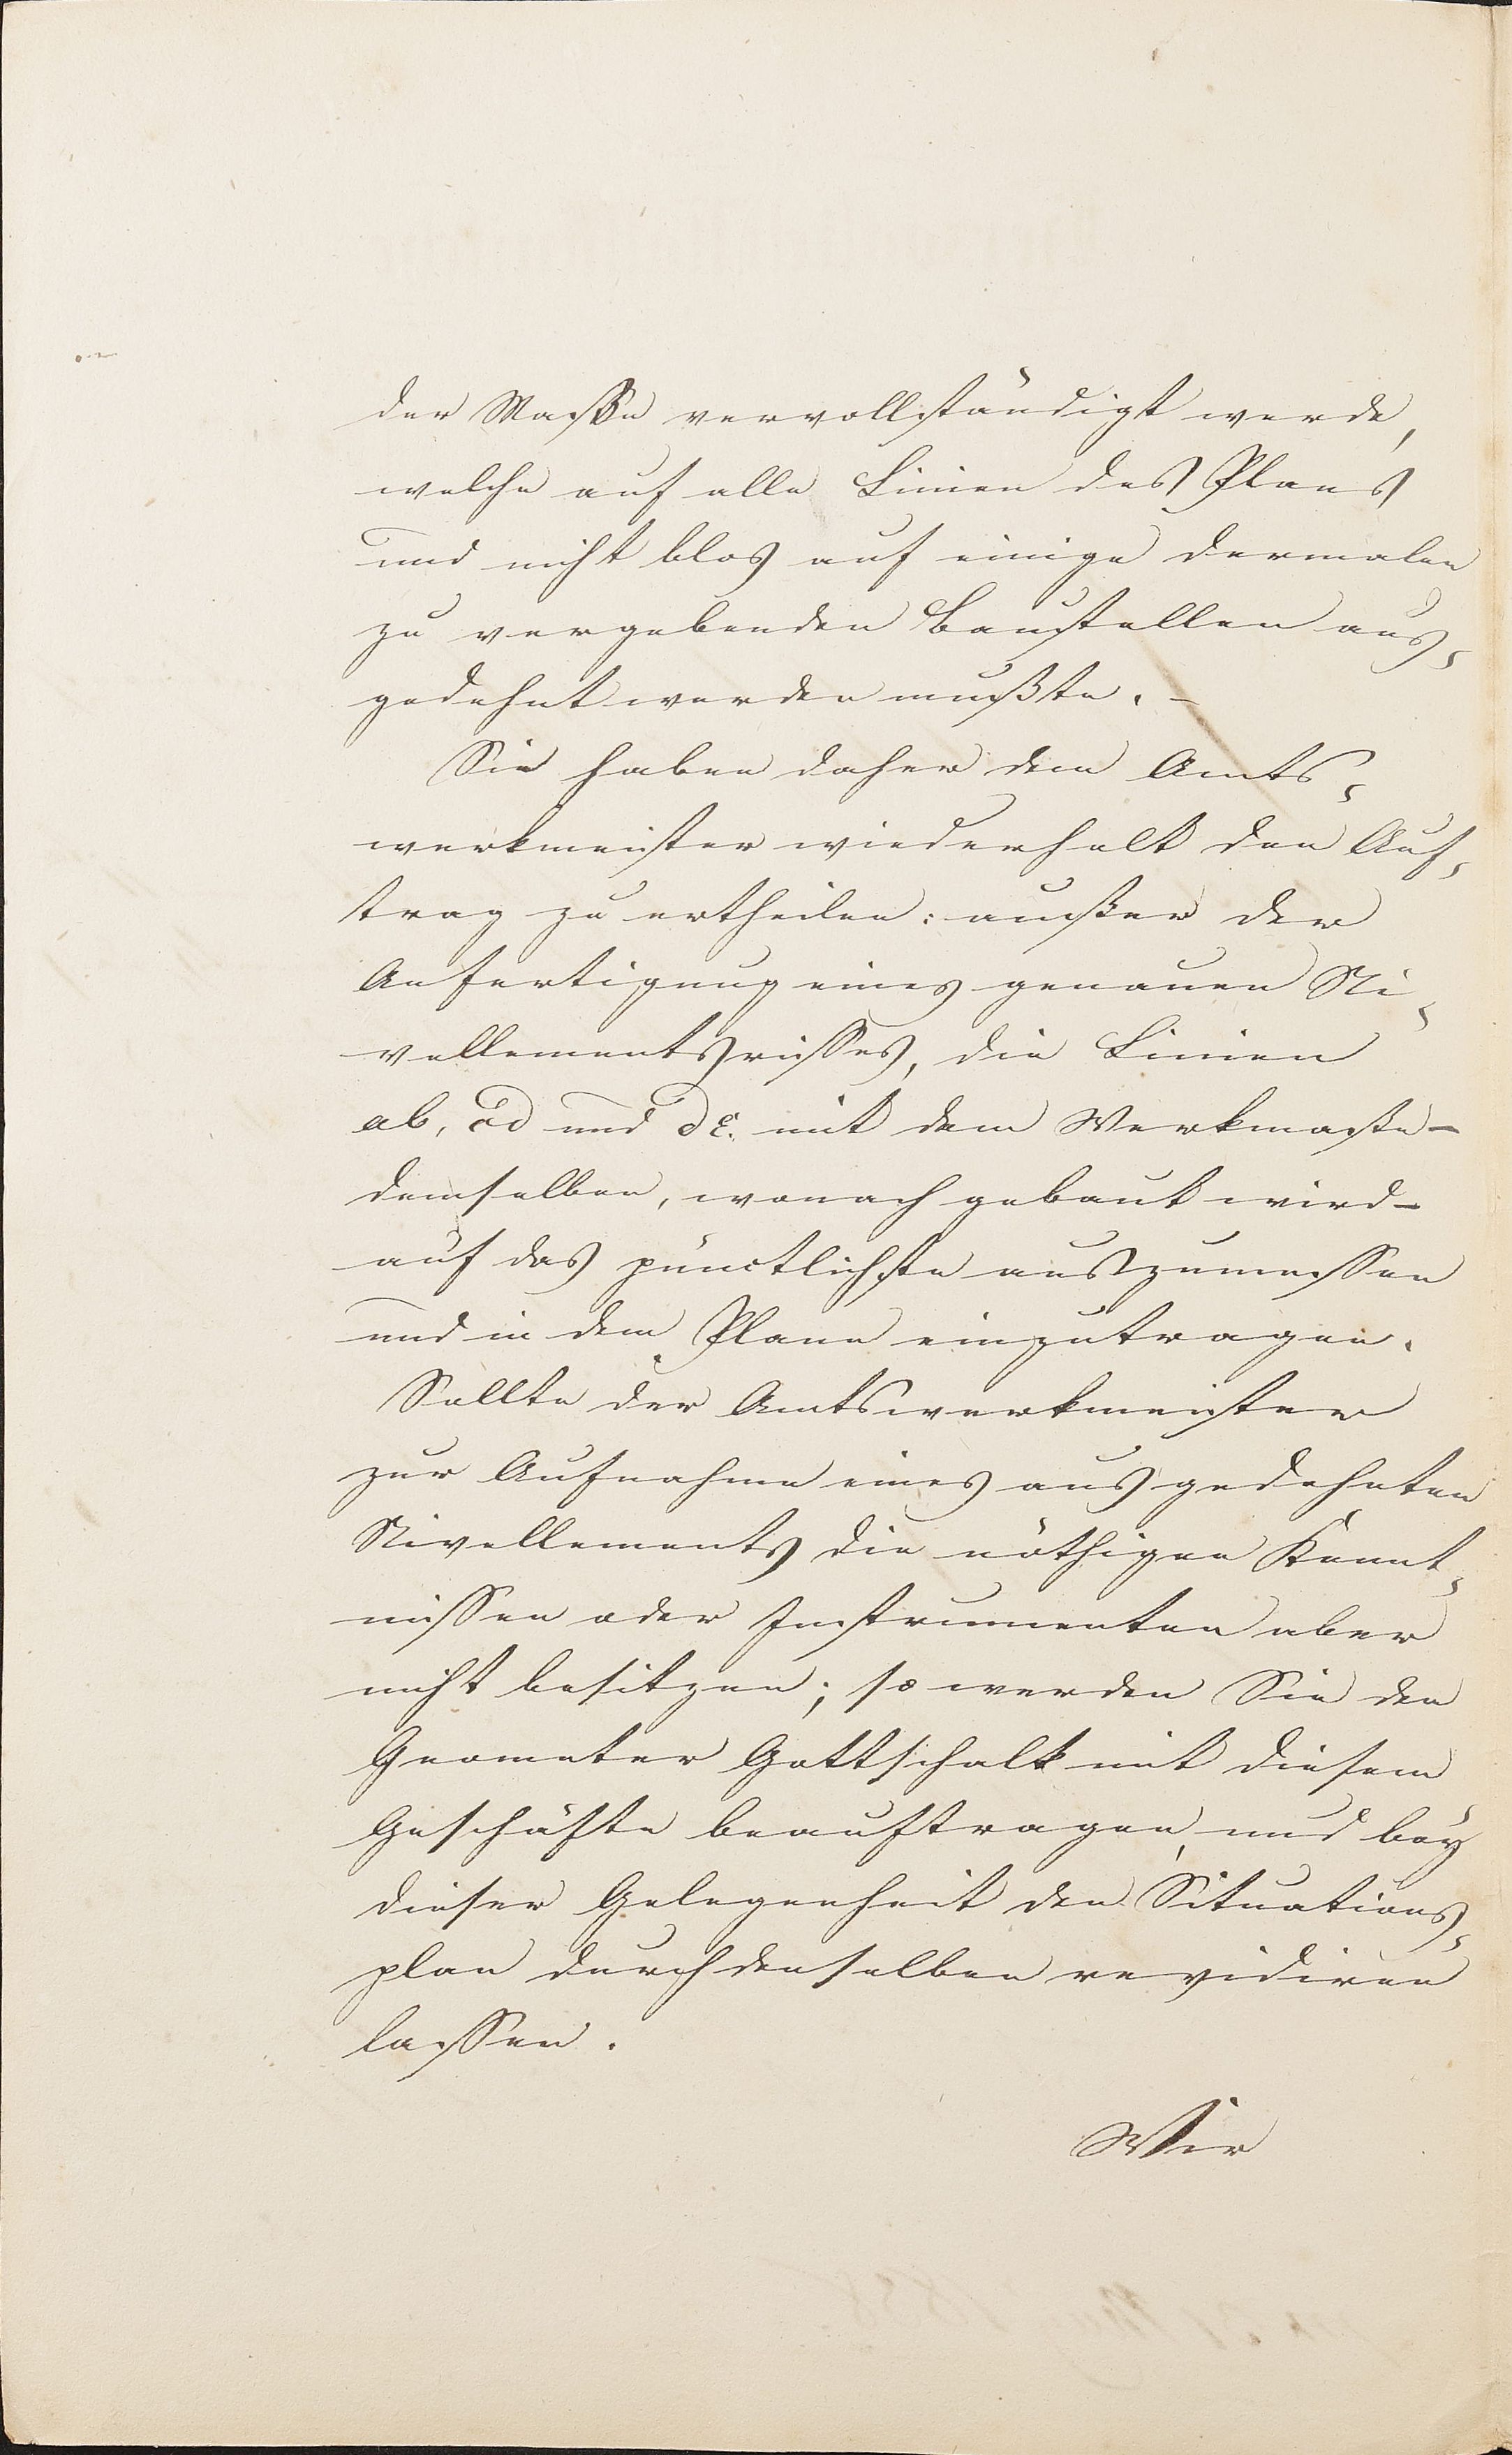 der Masse vervollständigt werde,
welche auf alle Linien des Plans
und nicht blos auf einige dermalen
zu vergebenden Baustellen aus-
gedehnt werden mußte. -
Sie haben daher dem Amts-
werkmeister wiederholt den Auf-
trag zu ertheilen: außer der
Anfertigung eines genauen Ni-
vellementsrisses, die Linien
ab, cd und de. mit dem Werkmaße -
demselben, wonach gebaut wird -
auf das pünctlichste auszumessen
und in dem Plane einzutragen.
Sollte der Amtswerkmeister
zur Aufnahme eines ausgedehnten
Nivellements die nöthigen Kennt-
nissen oder Instrumenten aber
nicht besitzen; so werden Sie den
Geometer Gottschalk mit diesem
Geschäfte beauftragen, und bey
dieser Gelegenheit den Situations-
plan durch denselben revidiren
lassen.
Wir